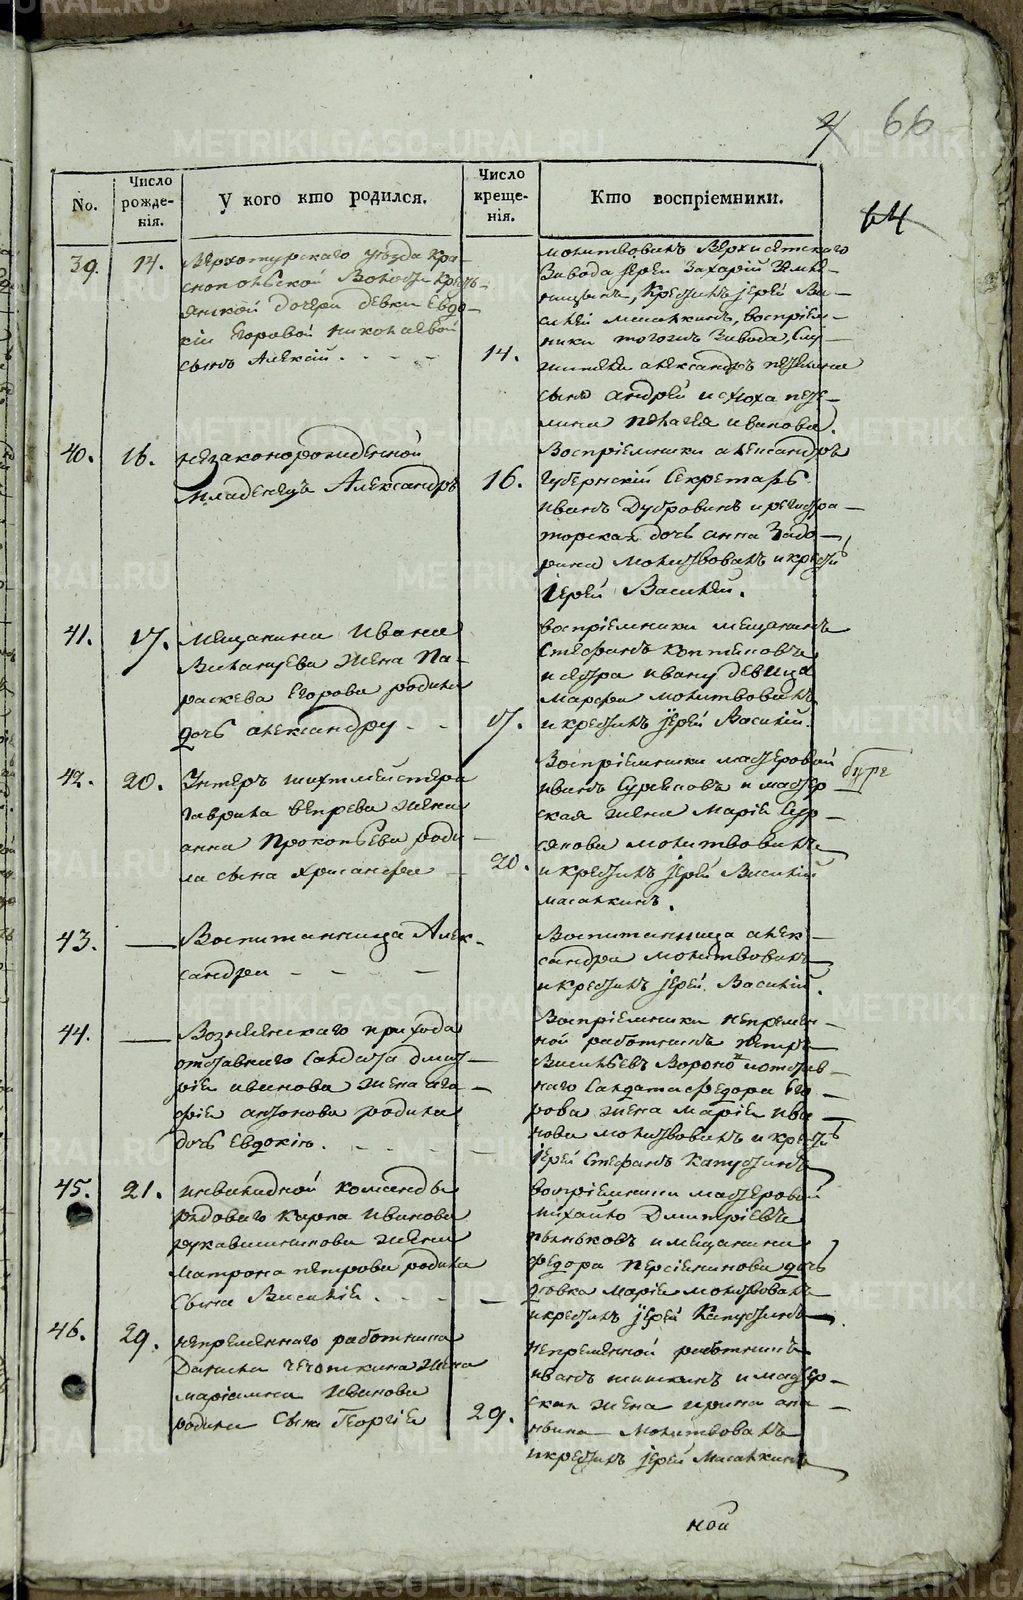 66
64
No.
Число рожде-нія.
У кого кто родился.
Число креще-нія.
Кто воспріемники.
39.
14.
Верхотурскаго уезда Кра-
снопольской Волости Кресть-
янской дочери девки Евдо-
кіи Егоровой Николаевой
сынъ Алексій.
14.
молитвовалъ Верхисетскаго
Завода Іерей Захарій Земля-
ницынъ, Крестилъ іерей Ва-
силей Масалкинъ, воспріем-
ники тогожъ Завода, Слу-
жители александръ
сынъ андрей и сноха
Пелагея иванова.
40.
16.
незаконорожденной
Младенецъ Александръ
16.
Воспріемники александръ
Губернскій Секретарь
иванъ Дубровинъ и регистра-
торская дочь анна
молитвовалъ и крести
іерей Василей.
41.
17.
Мещанина Ивана
жена Па-
раскева Егорова родила
дочь александру
17.
воспріемники мещанинъ
Стефанъ Коптяковъ
и сестра ивану девица
Марфа молитвовалъ
и крестилъ іерей Василій.
42.
20.
Унтеръ шихтмейстера
гаврила вепрева жена
анна Прокопьева роди-
ла сына Хрисанфа
20.
Воспріемники мастеровой
иванъ Сурсяновъ и мастер
ская жена Марія Сур-
сянова молитвовалъ
и крестилъ іерей Василій
масалкинъ.
43.
Воспитанница Алек-
сандра
Воспитанница алек-
сандра молитвовалъ
и крестилъ іерей Василій.
44.
Вознесенскаго прихода
отставнаго Салдата дмит-
рія иванова жена ага-
фія антонова родила
дочь Евдокію.
Воспріемники непремен-
ной работникъ петръ
Васильевъ и отстав-
наго Салдата федора Его-
рова жена марія ива-
нова молитвовалъ и крести
іерей Стефанъ Капустинъ
45.
21.
инвалидной команды
рядоваго карпа Иванова
рукавишникова жена
Матрона петрова родила
Сына Василія.
воспріемники мастеровой
михайло Дмитріевъ
пьянковъ и мещанина
федора дочь
девка марія молитвовалъ
и крестилъ іерей Капустинъ.
46.
29.
непременнаго работника
Данила жена
маріамна Иванова
родила Сына Георгія
29.
непременной работникъ
иванъ шишкинъ и мастер-
ская жена ирина ана-
ньина Молитвовалъ
и крестилъ іерей Масалкинъ
ной
METRIKI.GASO-URAL.RU